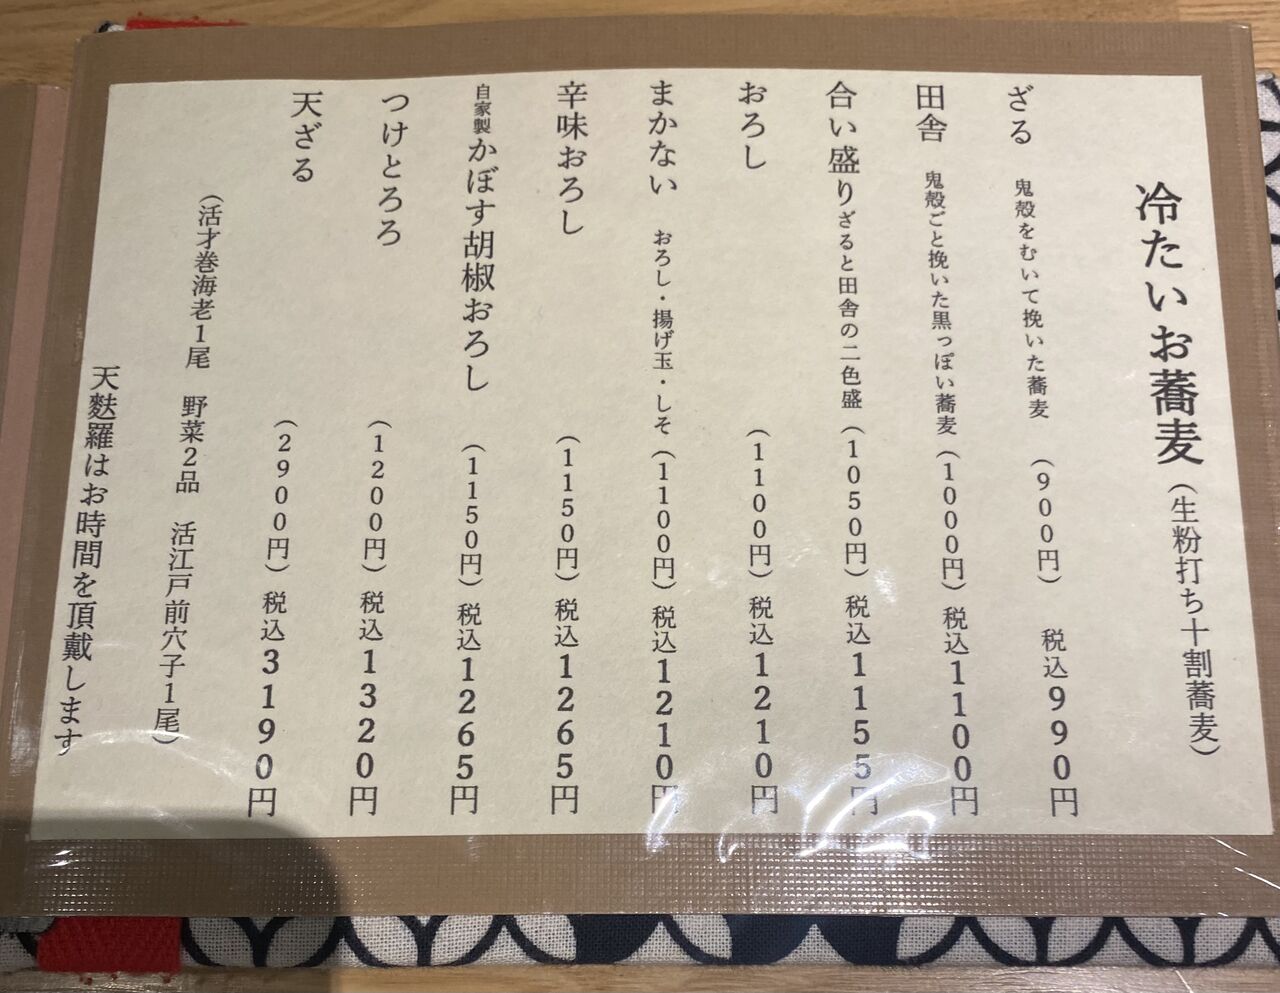 冷たいお蕎麦(生粉打ち十割蕎麦)
ざる 鬼殻をむいて挽いた蕎麦 (900円) 税込990円
田舎 鬼殻ごと挽いた黒っぽい蕎麦(1000円)税込1100円
合い盛りざると田舎の二色盛(1050円)税込1155円
おろし (1100円)税込1210円
まかない おろし・揚げ玉・しそ(1100円)税込1210円
辛味おろし (1150円)税込1265円
自家製かぼす胡椒おろし (1150円)税込1265円
つけとろろ (1200円)税込1320円
天ざる (2900円)税込3190円
(活才巻海老1尾 野菜2品 活江戸前穴子1尾)
天麩羅はお時間を頂戴します